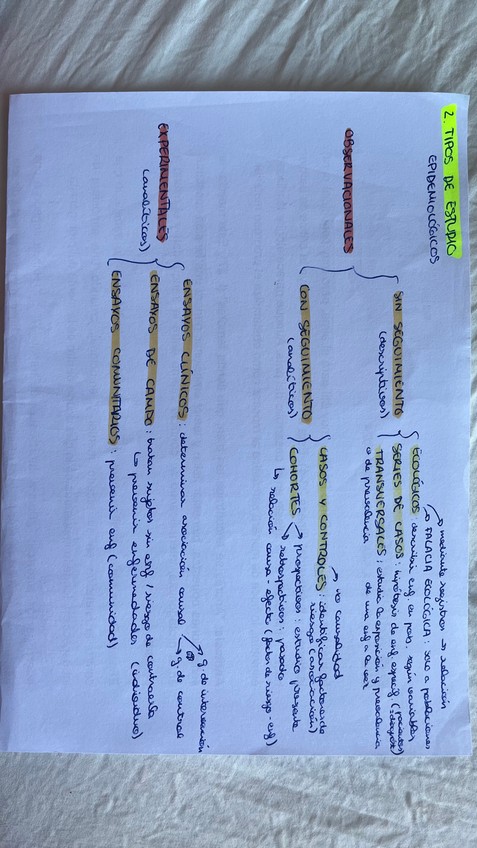 2. TIPOS DE ESTUDIO
EPIDEMIOLÓGICOS
OBSERVACIONALES
SIN SEGUIMIENTO
(descriptivos)
→ mediante registros → relación
→ FALACIA ECOLÓGICA: solo a poblaciones
ECOLÓGICOS: describir enf. en pob. según variables
SERIES DE CASOS: hipótesis de enf. específ
TRANSVERSALES: estudia la exposición y prevalencia
o de prevalencia de una enf a la vez
CON SEGUIMIENTO
(analíticos)
→ no causalidad
CASOS Y CONTROLES: identifican factores de
riesgo (asociación)
COHORTES → prospectivos: estudio presente
→ retrospectivos: pasado
↳ relación causa-efecto (factor de riesgo-enf)
EXPERIMENTALES
(analíticos)
ENSAYOS CLÍNICOS: determinar asociación causal
→ g. de intervención
→ g. de control
ENSAYOS DE CAMPO: tratan sujetos sin enf / riesgo de contraerla
↳ prevenir enfermedades (individuo)
ENSAYOS COMUNITARIOS: prevenir enf (comunidad)